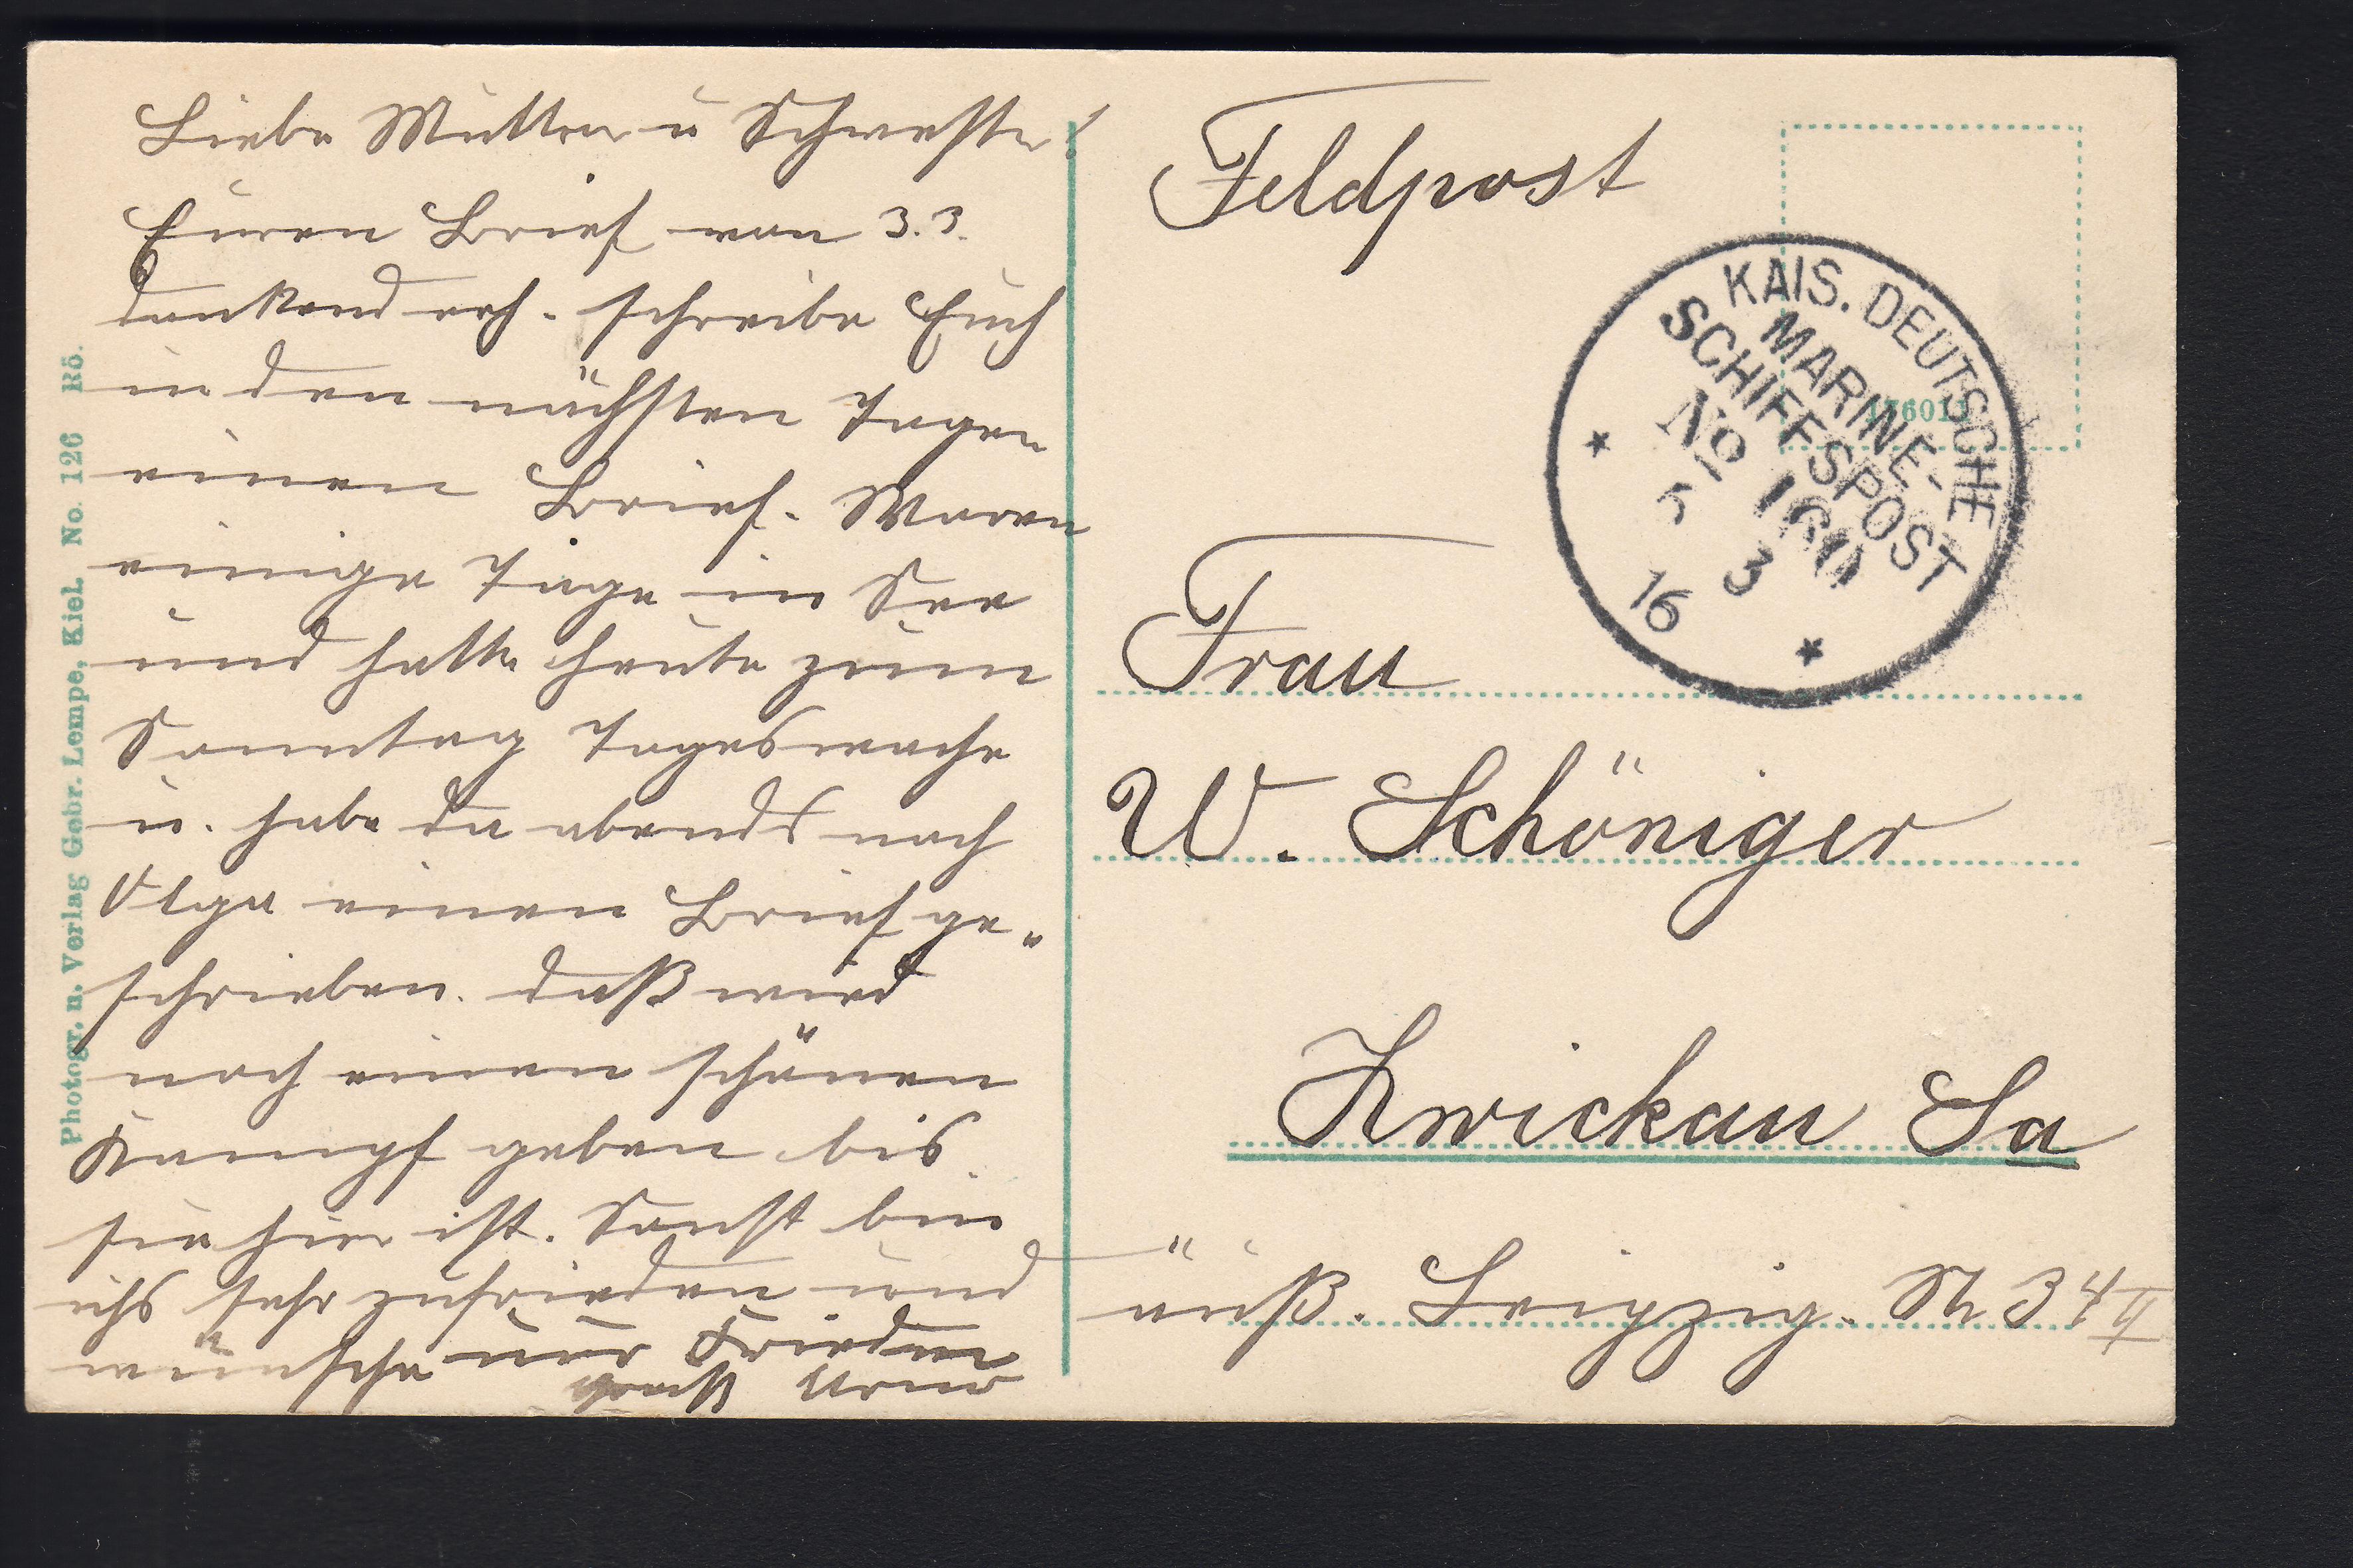 Liebe Mutter u Schwester!
Euren Brief von 3.3.
dankend erh. schreibe Euch
in den nächsten Tagen
einen Brief. Waren
einige Tage in See
und hatte heute zum
Sonntag Tageswache
u. habe da abends nach
Olga einen Brief ge-
schrieben. daß wird
noch einen schönen
Kampf geben bis
sie hier ist. Sonst bin
ichs sehr zufrieden und
wünsche nur Frieden
Gruß
Photogr. u. Verlag Gebr. Lempe, Kiel. No. 126 Rö.
Feldpost
KAIS. DEUTSCHE
MARINE-
SCHIFFSPOST
No 160
5 3
16
Frau
W. Schöniger
Zwickau Sa
äuß. Leipzig. Str 34 II